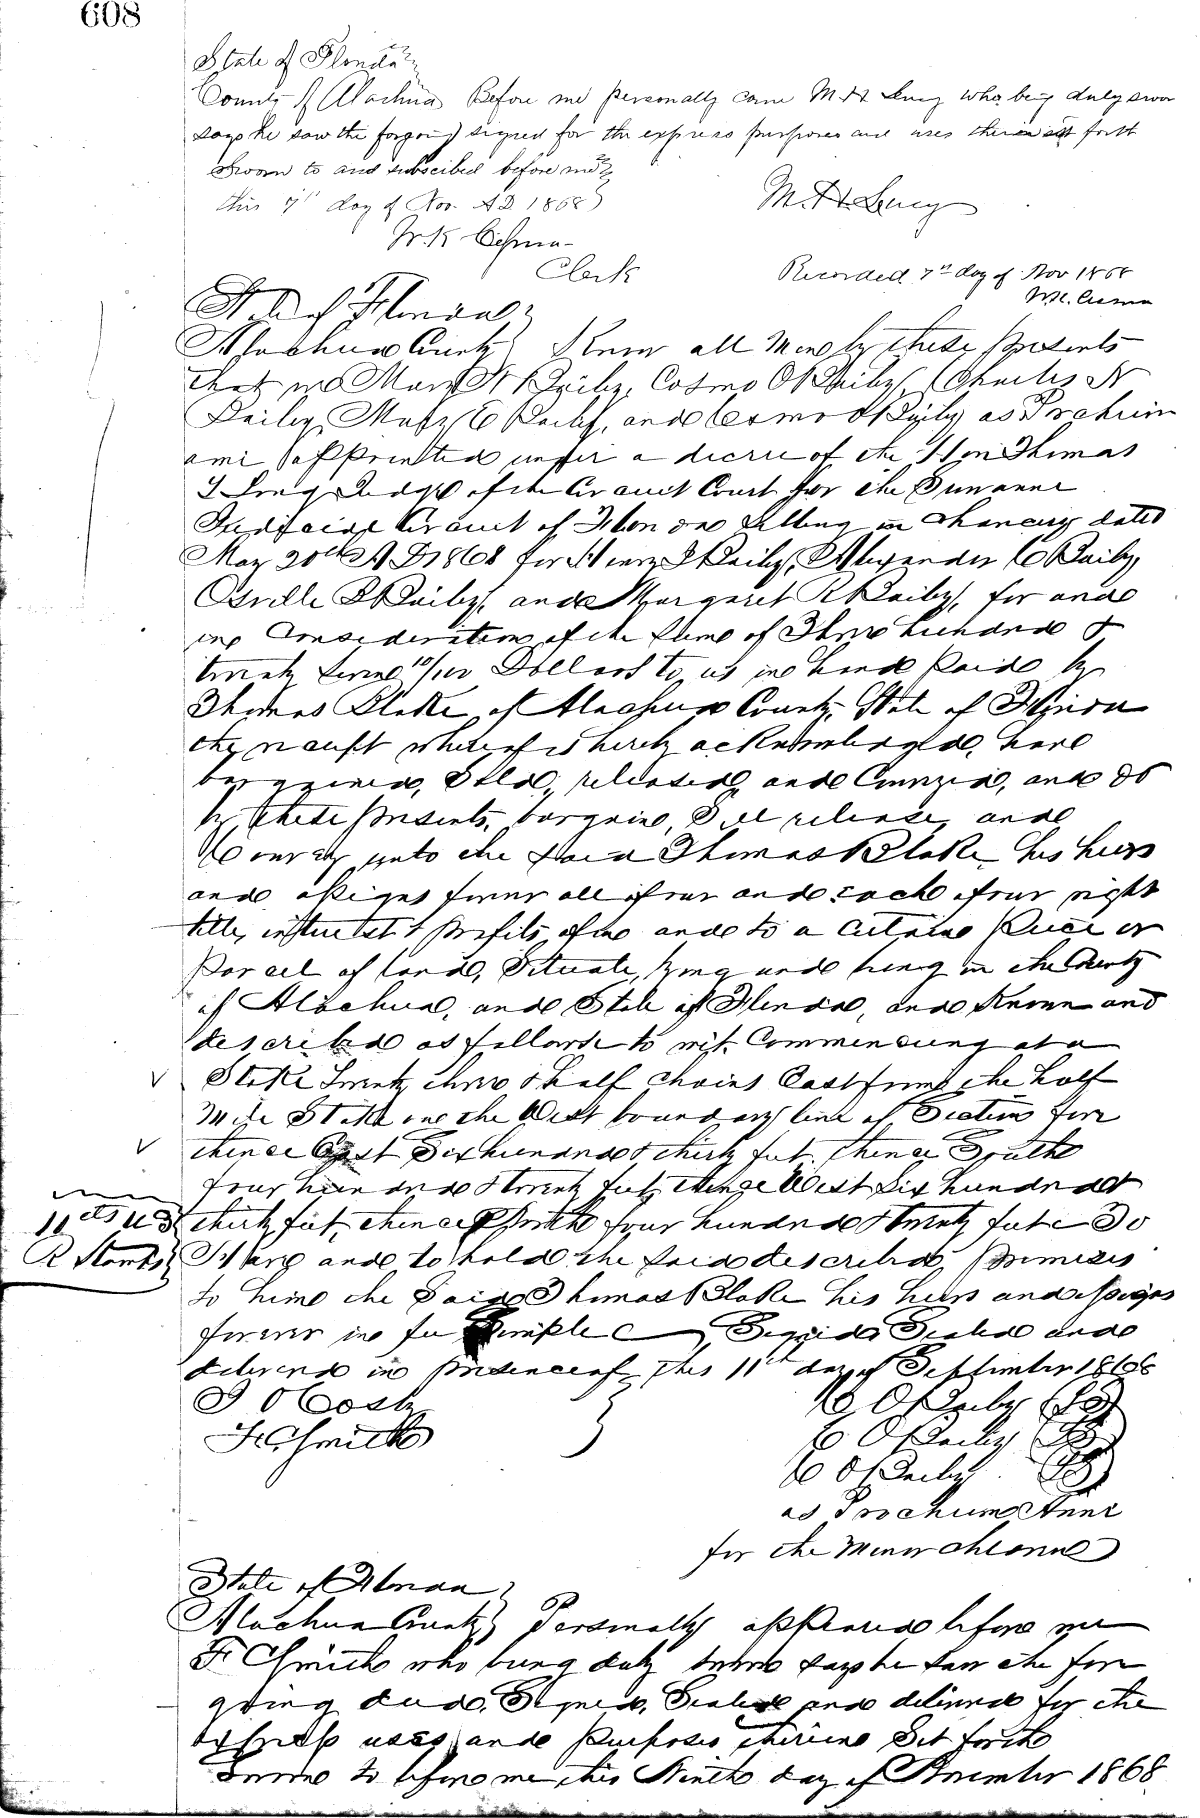 608
State of Florida
County of Alachua Before me personally came M. H. Lucy who being duly sworn
says he saw the forgoing signed for the express purposes and uses therein set forth
Sworn to and subscibed before me
this 7th day of Nov. AD 1868
M. H. Lucy
Clerk
Recorded 7th day of Nov 1868
State of Florida
Alachua County Know all Men by these presents
that we Mary Bailey, Cosmo O Bailey, Charles N
Bailey, Mary E Bailey, and Cosmo O Bailey as Prochein
ami appointed under a decree of the Hon Thomas
T Long Judge of the Circuit Court for the Suwannee
Judicial Circuit of Florida sitting in Chancery dated
May 20th A D 1868 for Henry Bailey, Alexander C Bailey,
Orville Bailey, and Margaret R Bailey, for and
in Consideration of the sum of Three hundred &
twenty seven 10/100 Dollars to us in hand paid by
Thomas Blake of Alachua County, State of Florida
the receipt whereof is hereby acknowledged, have
bargained, Sold, released, and Conveyed, and do
by these presents, bargain, Sell release and
Convey unto the said Thomas Blake his heirs
and assigns forever all of our and each of our right
title, interest & profits of in and to a certain piece or
parcel of land, Situate, lying and being in the County
of Alachua, and State of Florida, and known and
described as follows to wit. Commencing at a
v Stake Twenty three & half chains East from the half
Mile Stake on the West boundary line of Section five
v thence East Six hundred & thirty feet. thence South
four hundred & twenty feet, thence West Six hundred &
thirty feet, thence North four hundred & twenty feet To
R Stamps
Have and to hold the said described premises
to him the Said Thomas Blake his heirs and assigns
forever in fee Simple Signed Sealed and
delivered in presence of this 11th day of September 1868
J O Cosby
F C Smith
C O Bailey
C O Bailey
C O Bailey
as Prochein Ami
for the Minor children
State of Florida
Alachua County Personally appeared before me
F C Smith who being duly sworn says he saw the fore
going deed, Signed, Sealed and delivered for the
express uses and purposes therein Set forth
Sworn to before me this Ninth day of November 1868